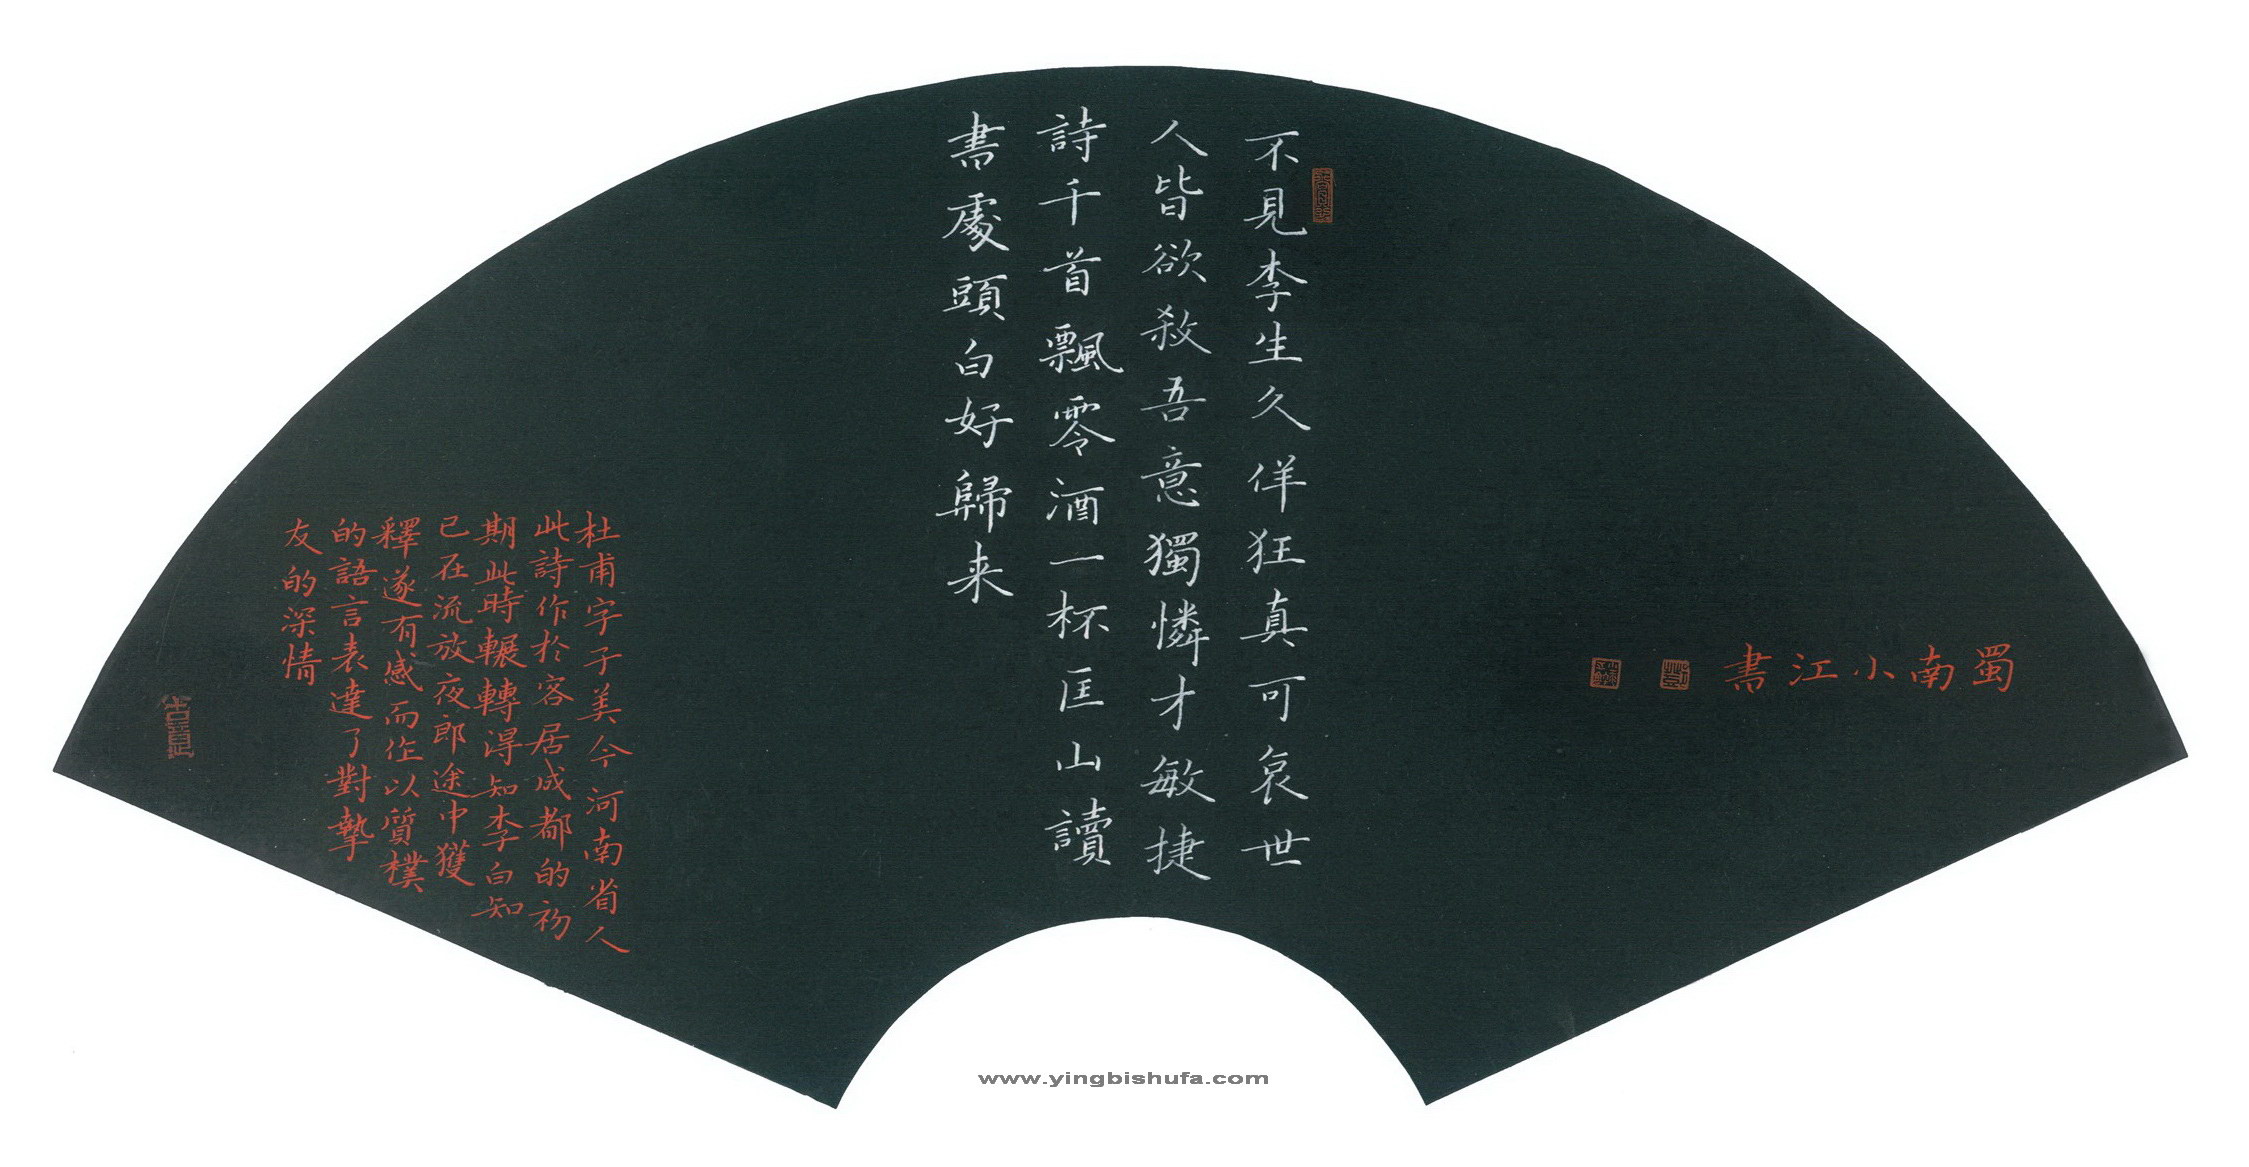 不見李生久佯狂真可哀世
人皆欲殺吾意獨憐才敏捷
詩千首飄零酒一杯匡山讀
書處頭白好歸来
蜀南小江書
杜甫字子美今河南省人
此詩作於客居成都的初
期此時輾轉淂知李白知
已在流放夜郎途中獲
釋遂有感而作以質樸
的語言表達了對摯
友的深情
www.yingbishufa.com